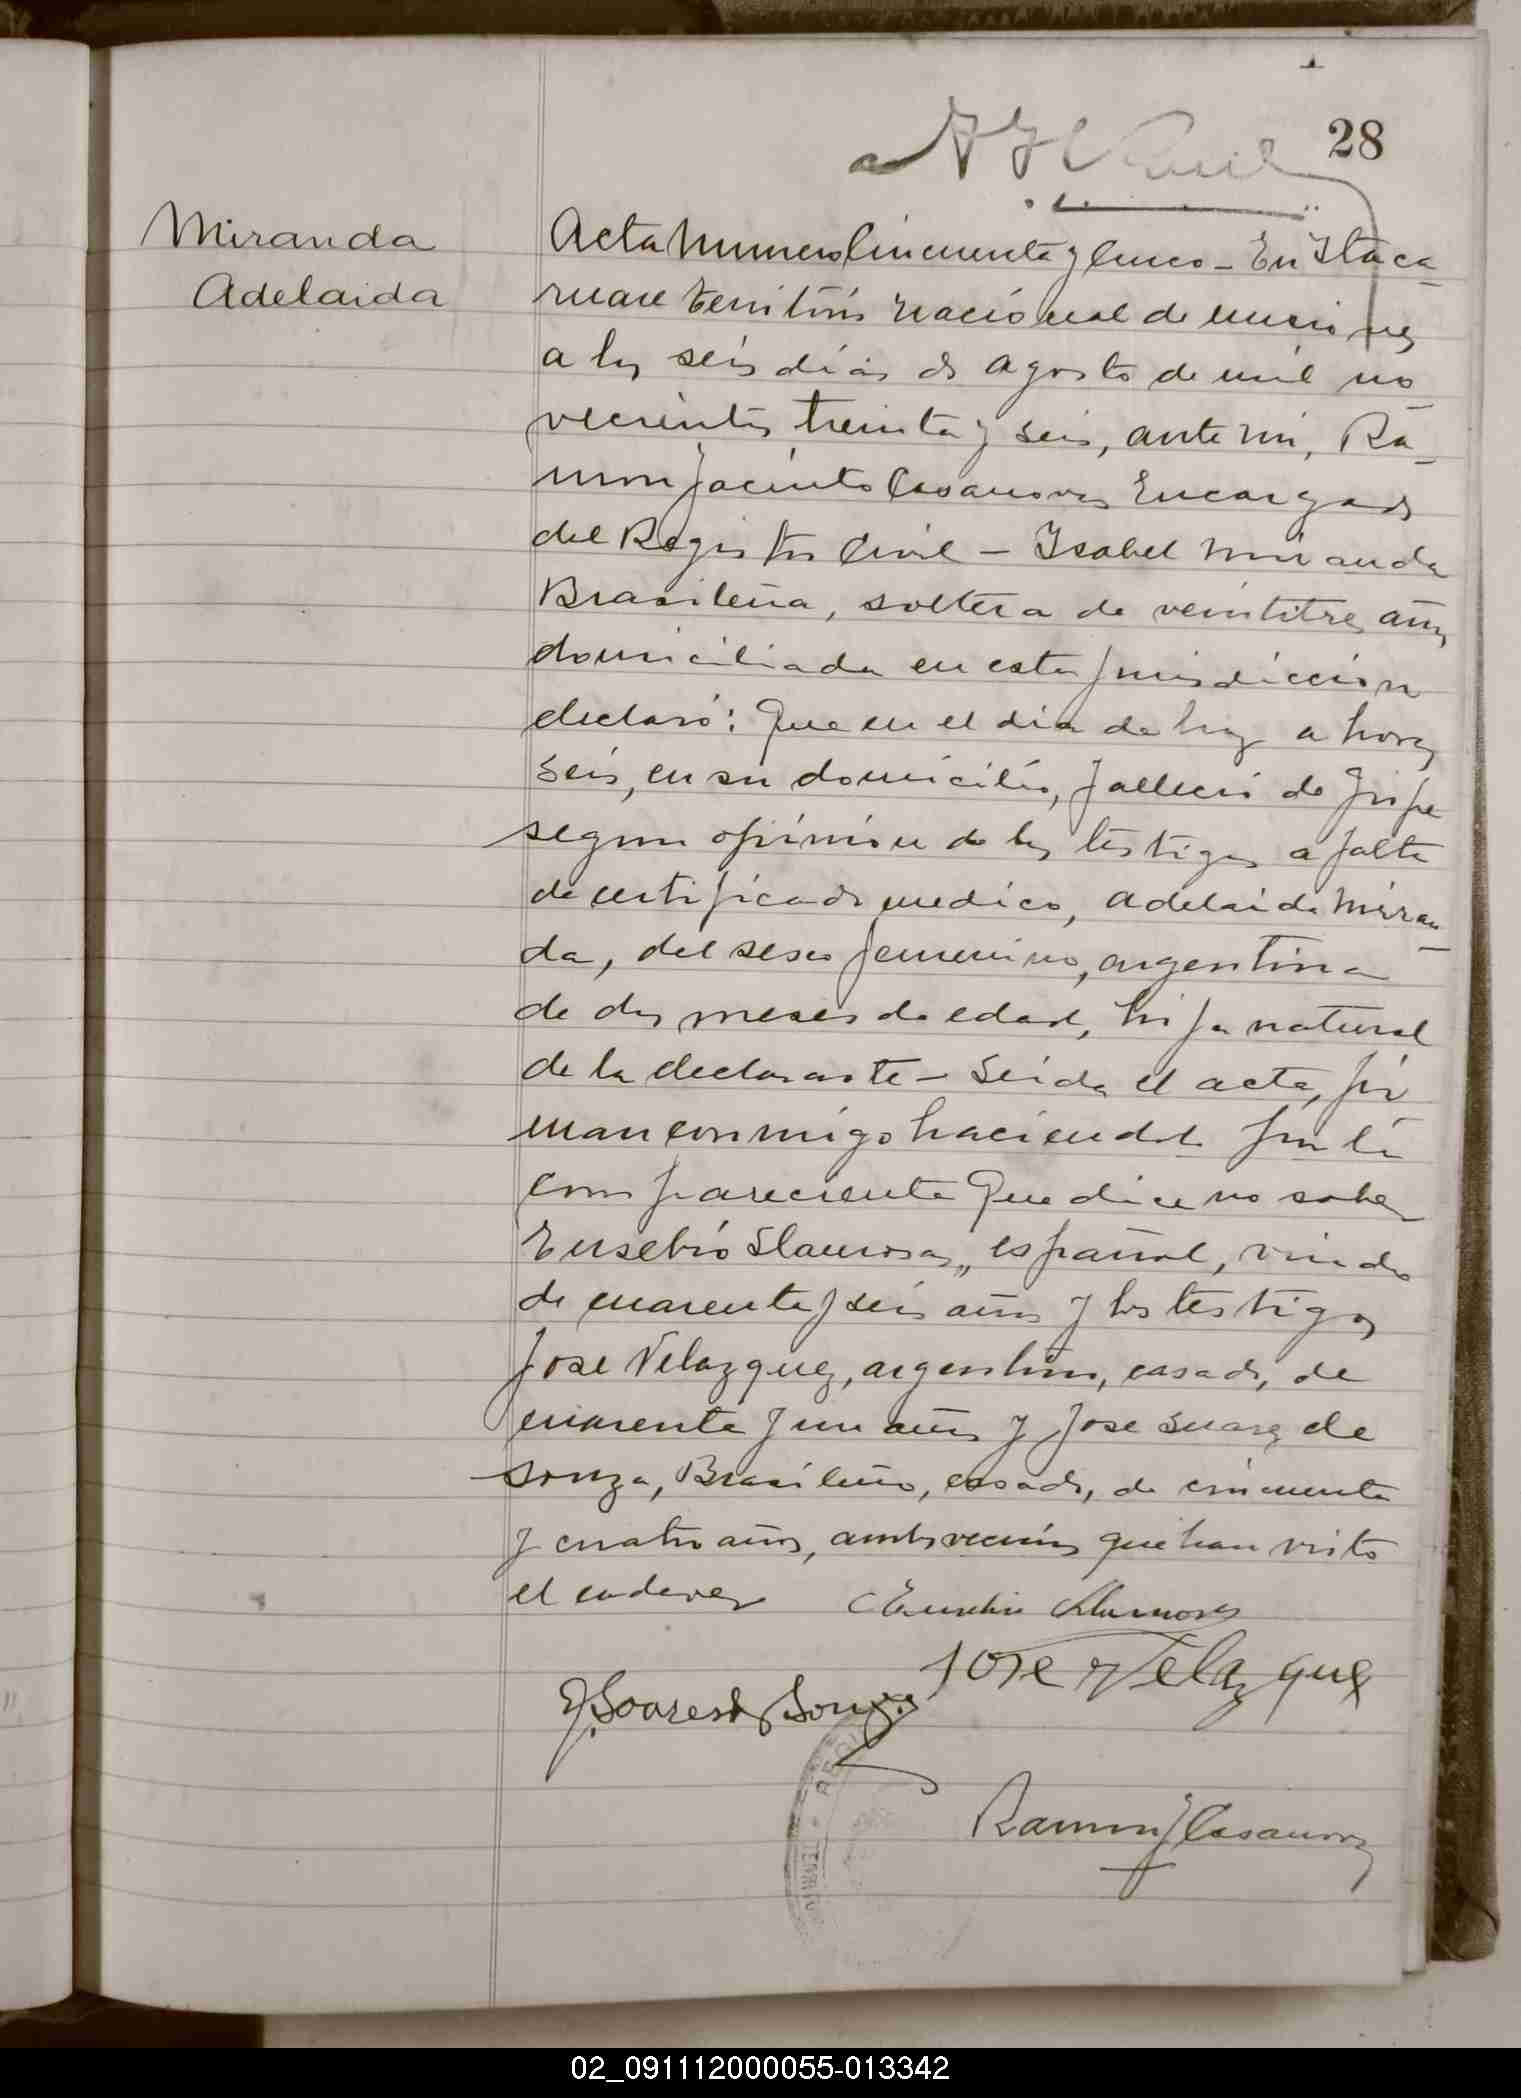 28
Miranda
Adelaida
Acta Numero Cincuenta y Cinco - En Itaca-
ruare territorio nacional de misiones
a los seis días de agosto de mil no-
vecientos treinta y seis, ante mi, Ra-
mon Jacinto Casanovas Encargado
del Registro Civil - Isabel Miranda
Brasileña, soltera de veintitres años
domiciliada en esta jurisdiccion
declaró: Que en el dia de hoy a horas
seis, en su domicilio, falleció de Gripe
segun opinión de los testigos a falta
de certificado medico, Adelaida Miran-
da, del sexo femenino, argentina
de dos meses de edad, hija natural
de la declarante - Leida el acta, fir
man conmigo haciendolo por la
compareciente Que dice no saber
Eusebio Llamosas, español, viudo
de cuarenta y seis años y los testigos
Jose Velazquez, argentino, casado, de
cuarenta y un años y Jose Suarez de
Souza, Brasileño, casado, de cincuenta
y cuatro años, ambos vecinos que han visto
el cadaver
Eusebio Llamosas
Jose Velazquez
J. Soares de Souza
Ramon J Casanovas
02_091112000055-013342